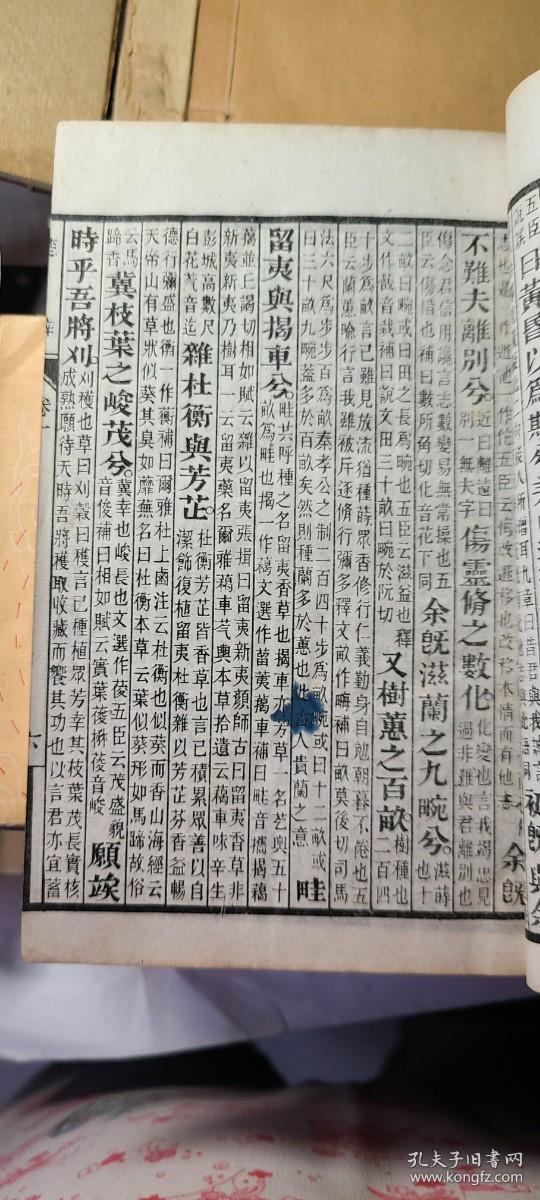 不難夫離別兮。近曰離遠曰別一無夫字傷靈脩之數化。化變也言我竭忠見過非難與君離別也
傷念君信用讒言志數變易無常操也五臣云傷惜也補曰數所角切化音花下同余旣滋蘭之九畹兮。滋蒔也十
二畝曰畹或曰田之長爲畹也五臣云滋益也釋文作哉音栽補曰說文田三十畝曰畹於阮切又樹蕙之百畝。樹種也二百四
十步爲畝言己雖見放流猶種蒔眾香修行仁義勤身自勉朝暮不倦也五臣云蘭蕙喻行言我雖被斥逐修行彌多釋文畝作畮補曰畝莫後切司馬
法六尺爲步步百爲畝秦孝公之制二百四十步爲畝畹或曰十二畝或曰三十畝九畹蓋多於百畝矣然則種蘭多於蕙也此古人貴蘭之意畦
留夷與揭車兮。畦共呼種之名留夷香草也揭車亦芳草一名艺輿五十畝爲畦也揭一作藒文選作蒥荑藒車補曰畦音攜揭藒
藒並丘謁切相如賦云雜以留夷張揖曰留夷新夷顏師古曰留夷香草非新夷新夷乃樹耳一云留夷藥名爾雅藒車芞輿本草拾遺云藒車味辛生
彭城高數尺白花芞音迄雜杜衡與芳芷。杜衡芳芷皆香草也言己積累眾善以自潔飾復植留夷杜衡雜以芳芷芬香益暢
德行彌盛也衡一作蘅補曰爾雅杜土鹵注云杜衡也似葵而香山海經云天帝山有草狀似葵其臭如蘼蕪名曰杜衡本草云葉似葵形如馬蹄故俗
云馬蹄香冀枝葉之峻茂兮。冀幸也峻長也文選作葰五臣云茂盛貌音俊補曰相如賦云實葉葰楙葰音峻願竢
時乎吾將刈。刈穫也草曰刈穀曰穫言己種植眾芳幸其枝葉茂長實核成熟願待天時吾將穫取收藏而饗其功也以言君亦宜蓄
卷一
六
孔夫子旧书网
www.kongfz.com